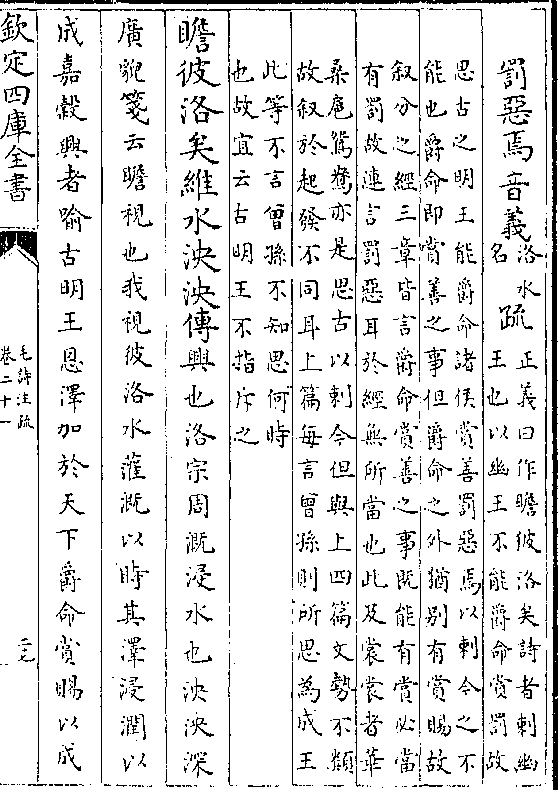 罰惡焉音義洛水名疏正義曰作瞻彼洛矣詩者刺幽王也以幽王不能爵命賞罰故
思古之明王能爵命諸侯賞善罰惡焉以刺今之不
能也爵命即賞善之事但爵命之外猶別有賞賜故
叙分之經三章皆言爵命賞善之事既能有賞必當
有罰故連言罰惡耳於經無所當也此及裳裳者華
桑扈鴛鴦亦是思古以刺今但與上四篇文勢不類
故叙於起發不同耳上篇每言曾孫則所思為成王
此等不言曾孫不知思何時
也故宜云古明王不指斥之
瞻彼洛矣維水泱泱傳興也洛宗周溉浸水也泱泱深
廣貌箋云瞻視也我視彼洛水灌溉以時其澤浸潤以
成嘉穀興者喻古明王恩澤加於天下爵命賞賜以成
欽定四庫全書
毛詩注疏
卷二十一